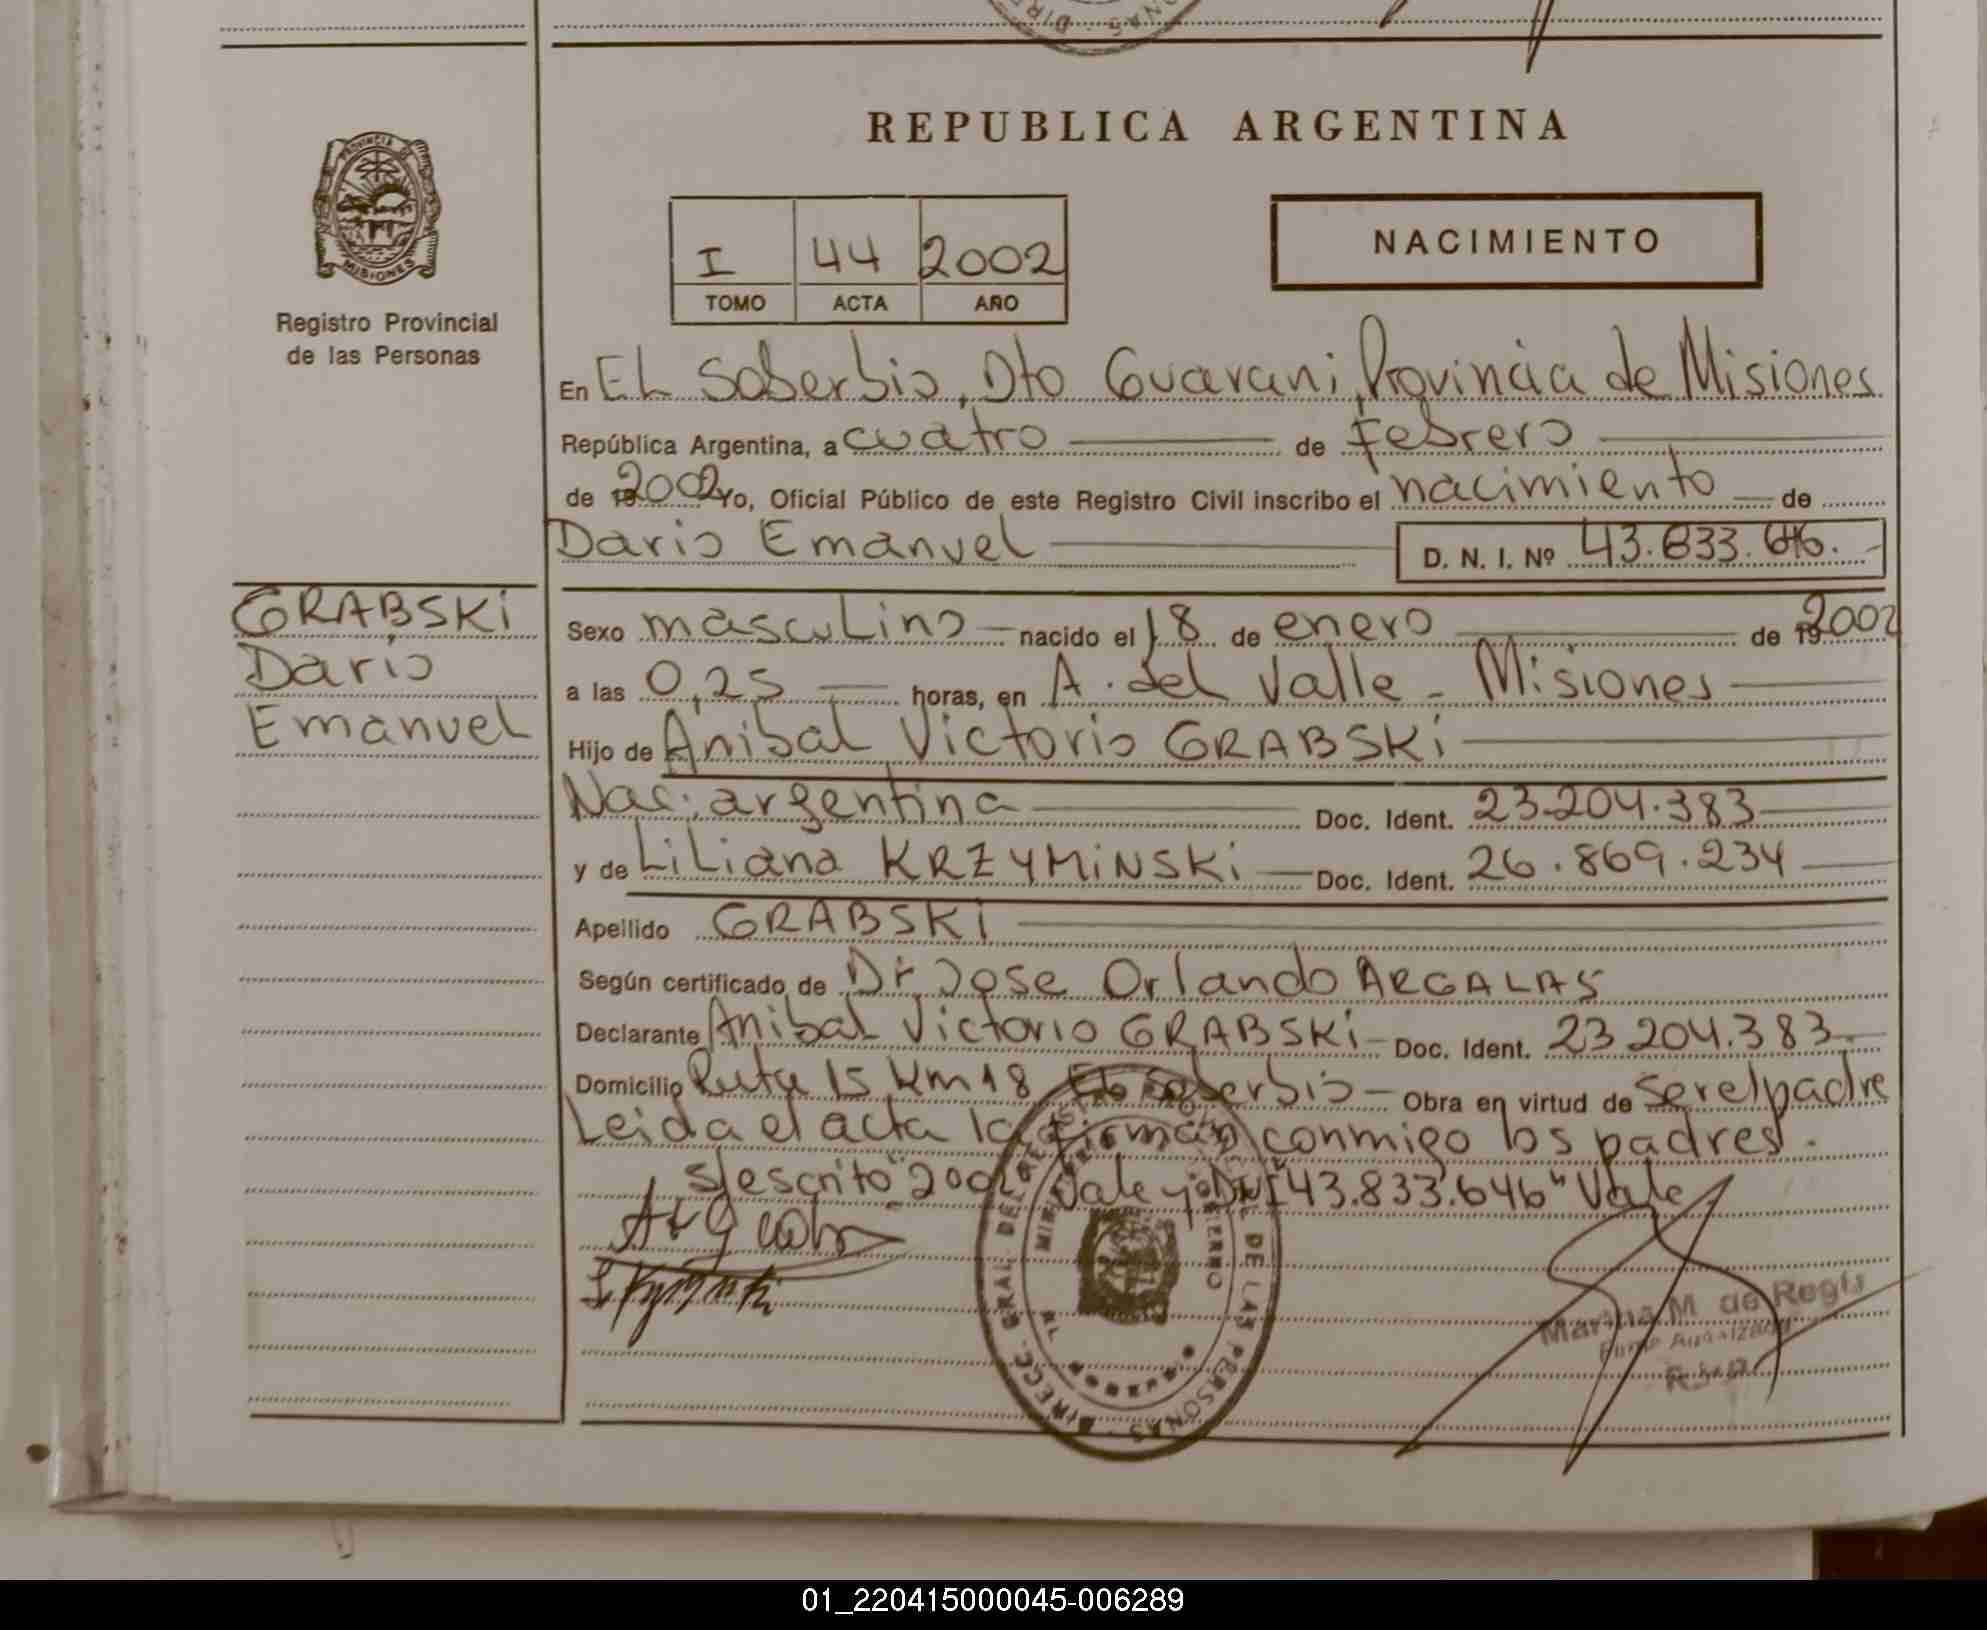 REPUBLICA ARGENTINA
PROVINCIA DE
MISIONES
Registro Provincial
de las Personas
I 44 2002
TOMO ACTA AÑO
NACIMIENTO
En EL Soberbio, Dto Guarani, Provincia de Misiones
República Argentina, a cuatro de febrero
de 19 2002 Yo, Oficial Público de este Registro Civil inscribo el nacimiento de
Dario Emanuel
D. N. I. Nº 43.833.646.
GRABSKi
Dario
Emanuel
Sexo masculino nacido el 18 de enero de 19 2002
a las 0,25 horas, en A. del Valle - Misiones
Hijo de Anibal Victorio GRABSKi
Nac. argentina Doc. Ident. 23.204.383
y de LiLiana KRZYMiNSKi Doc. Ident. 26.869.234
Apellido GRABSKi
Según certificado de Dr Jose Orlando ARGALAS
Declarante Anibal Victorio GRABSKi Doc. Ident. 23 204.383
Domicilio Ruta 15 Km 18 El Soberbio Obra en virtud de ser el padre
Leida el acta la firman conmigo los padres.
s/escrito "2002" Vale y "DNI 43.833.646" Vale
DIRECC. GRAL. DEL REGISTRO PROVINCIAL DE LAS PERSONAS
MINISTERIO DE GOBIERNO
M. de Regis
Firma Autorizada
01_220415000045-006289